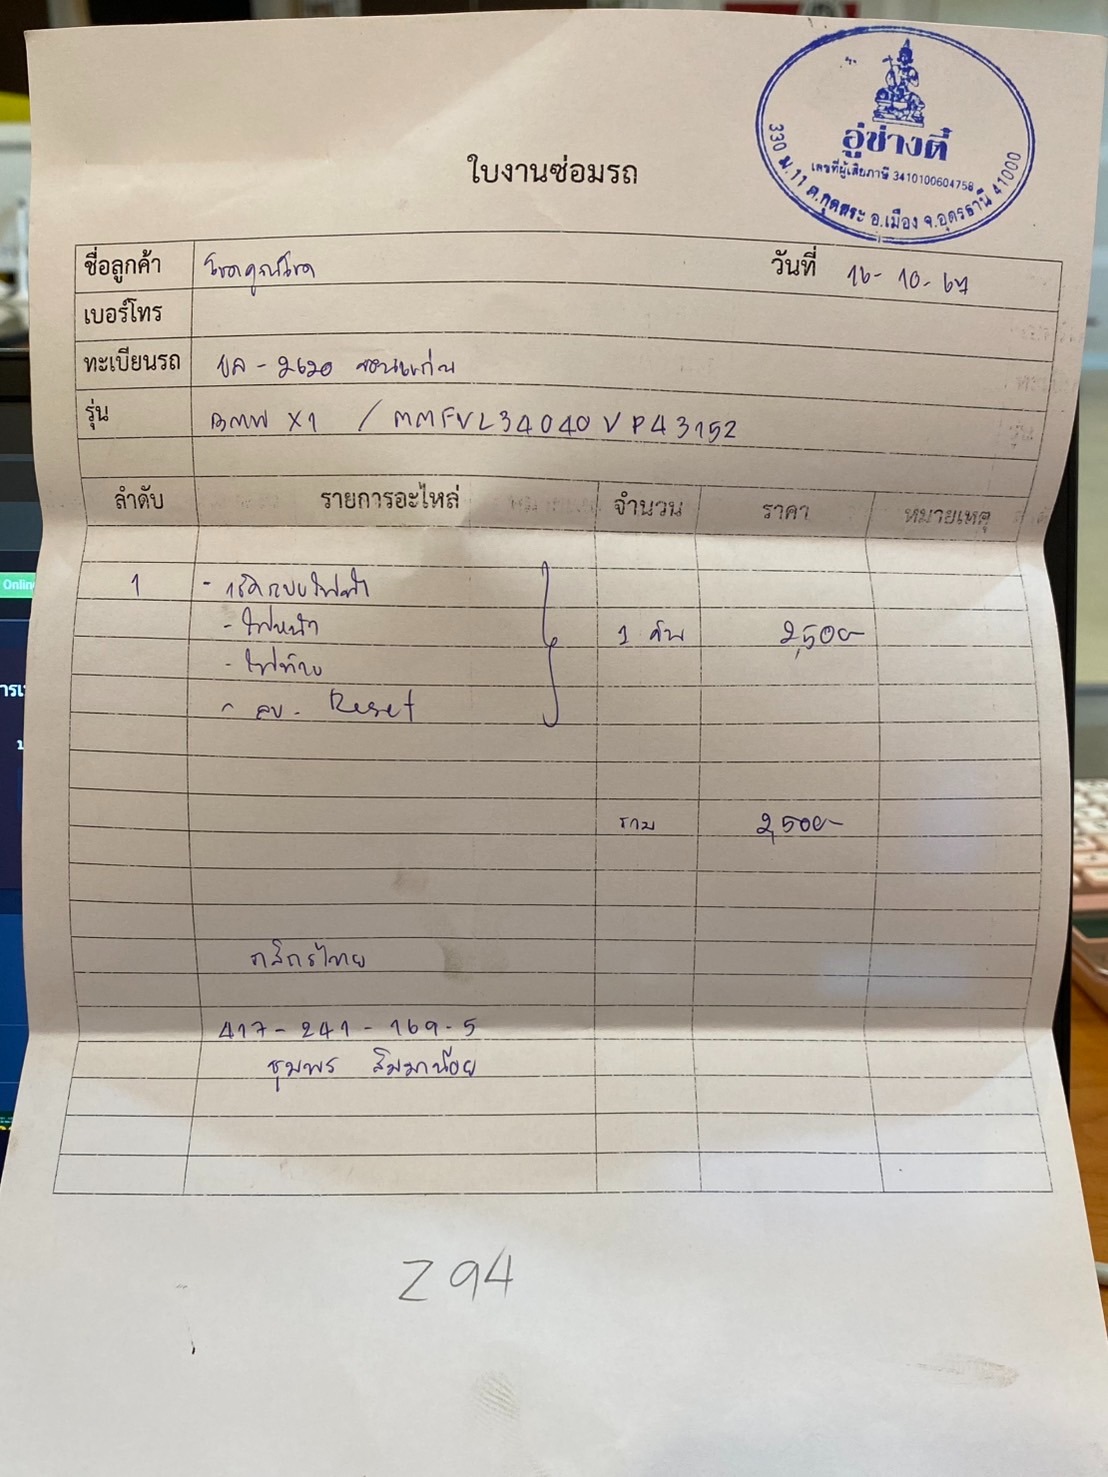 อู่ช่างตี๋
เลขที่ผู้เสียภาษี 3410100604758
330 ม.11 ต.กุดสระ อ.เมือง จ.อุดรธานี 41000
ใบงานซ่อมรถ
ชื่อลูกค้า โชคคูณโชค วันที่ 16-10-67
เบอร์โทร
ทะเบียนรถ ขล-2620 ขอนแก่น
รุ่น BMW X1 / MMFVL34040VP43152
ลำดับ รายการอะไหล่ จำนวน ราคา หมายเหตุ
1 - เช็คระบบไฟฟ้า
- ไฟหน้า 1 คัน 2,500-
- ไฟท้าย
- ลบ - Reset
รวม 2,500-
กสิกรไทย
417-241-169-5
ชุมพร สิมมาน้อย
Z94
Online